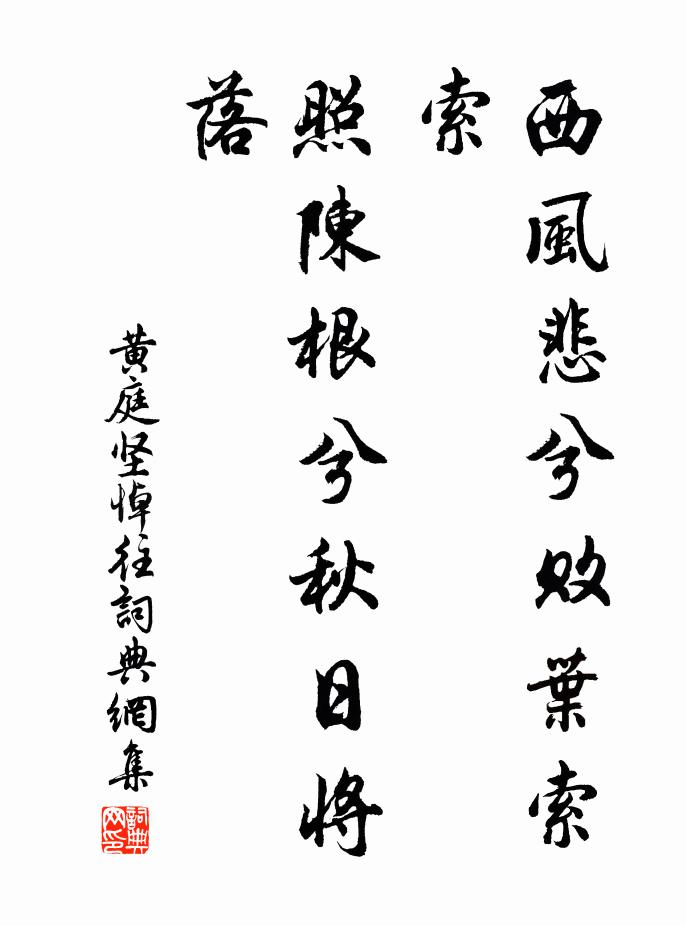 西風悲兮敗葉索
索
照陳根兮秋日將
落
黄庭坚悼往詞典網集
詞典
网印